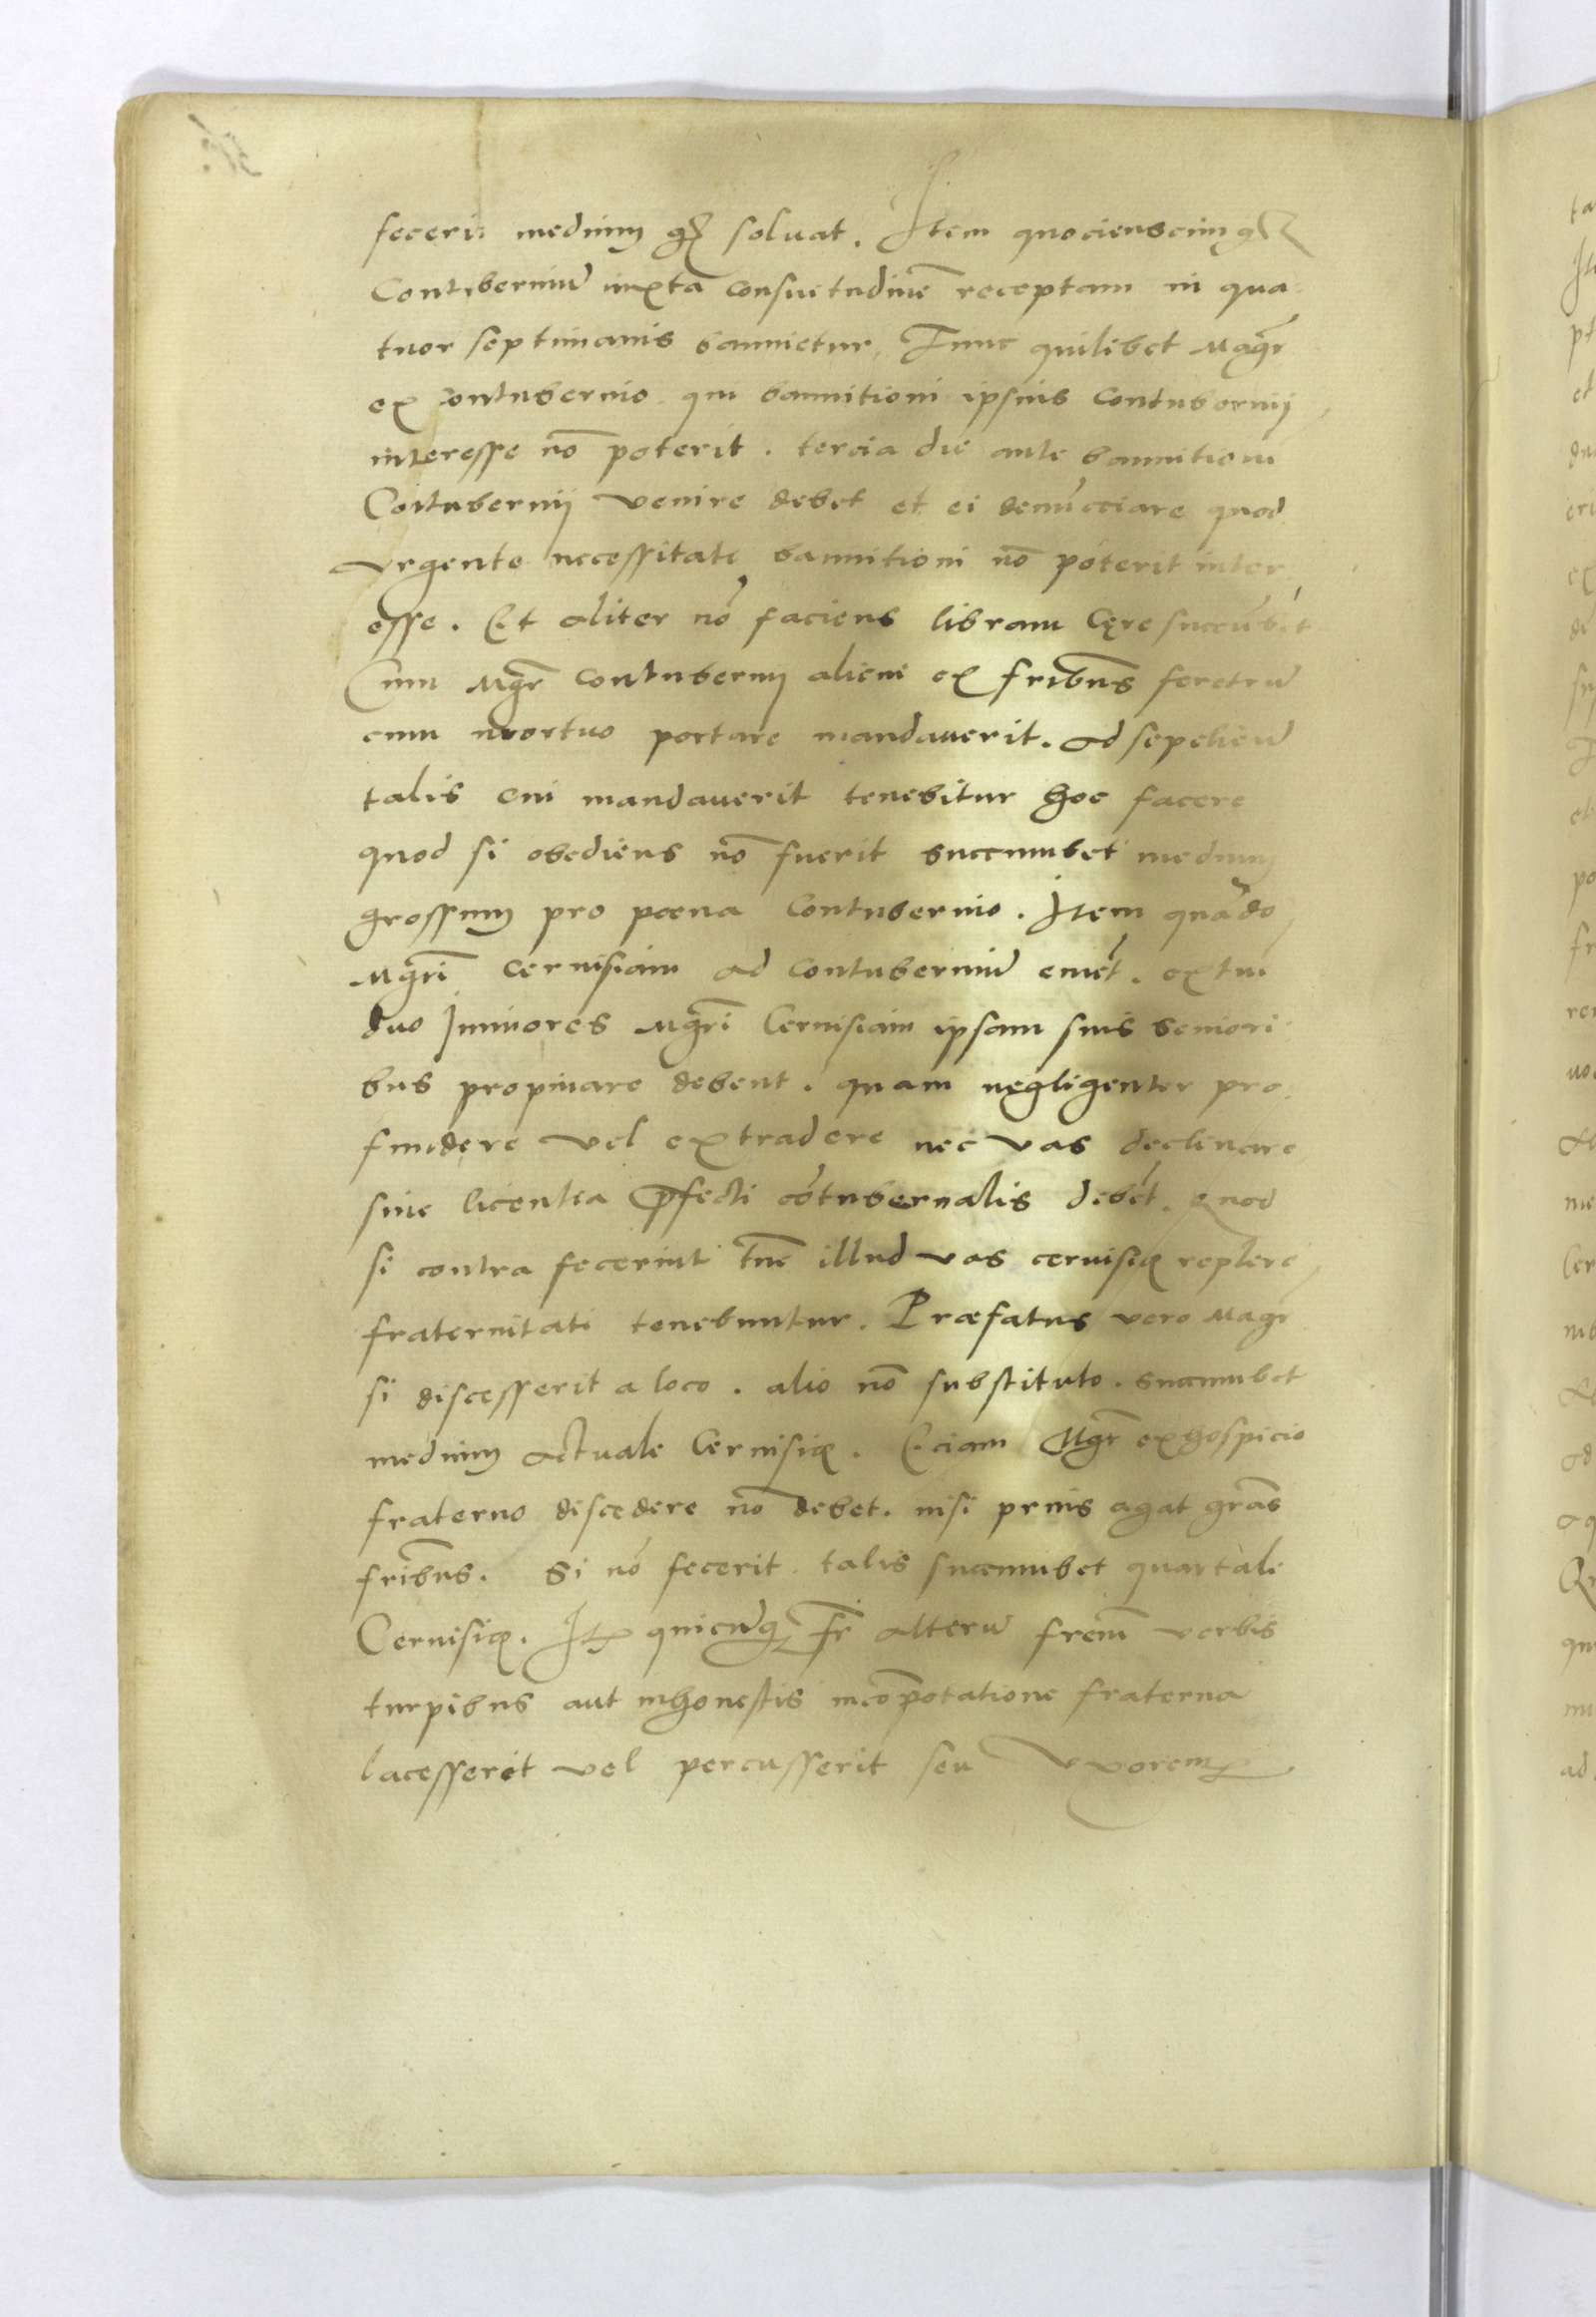 feceri medium gꝝ soluat. Item quocienscunqꝫ
Contuberniū iuxta consuetudinē receptam in qua
tuor septimanis bannietur, Tunc quilibet Magr̄
ex contubernio qui bannitioni ipsius Contubernij
interesse nō poterit. tercia die ante bannitionē
Contubernij venire debet et ei denūcciare quod
vrgente necessitate bannitioni nō poterit inter
esse. Et aliter nō faciens libram Cęre succūbet
Cum Mgr̄ contubernij alicui ex fribūs feretrū
cum mortuo portare mandauerit. ad sepeliend
talis cui mandauerit tenebitur hoc facere
quod si obediens nō fuerit succumbet medium
grossum pro poena Contubernio. Item quādo
Mgrī ceruisiam ad contuberniū emēt. extūc
duo Juniores Mgrī Ceruisiam ipsam suis seniori
bus propinare debent. quam negligenter pro
fundere vel extradere nec vas declinare
sine licentia p̄fecti cōtubernalis debēt. Quod
si contra fecerint tūc illud vas ceruisię replere
fraternitati tenebuntur. Præfatus vero Magr̄
si discesserit a loco. alio nō substituto. succumbet
medium actuale Ceruisię. Eciam Mgr̄ ex hospicio
fraterno discedere nō debet. nisi prius agat gr̄as
fribūs. Si nō fecerit talis succumbet quartale
Ceruisię. Itꝫ quicūqꝫ fr̄ alterū frēm verbis
turpibus aut inhonestis in cōpotatione fraterna
lacesseret vel percusserit seu vxorem